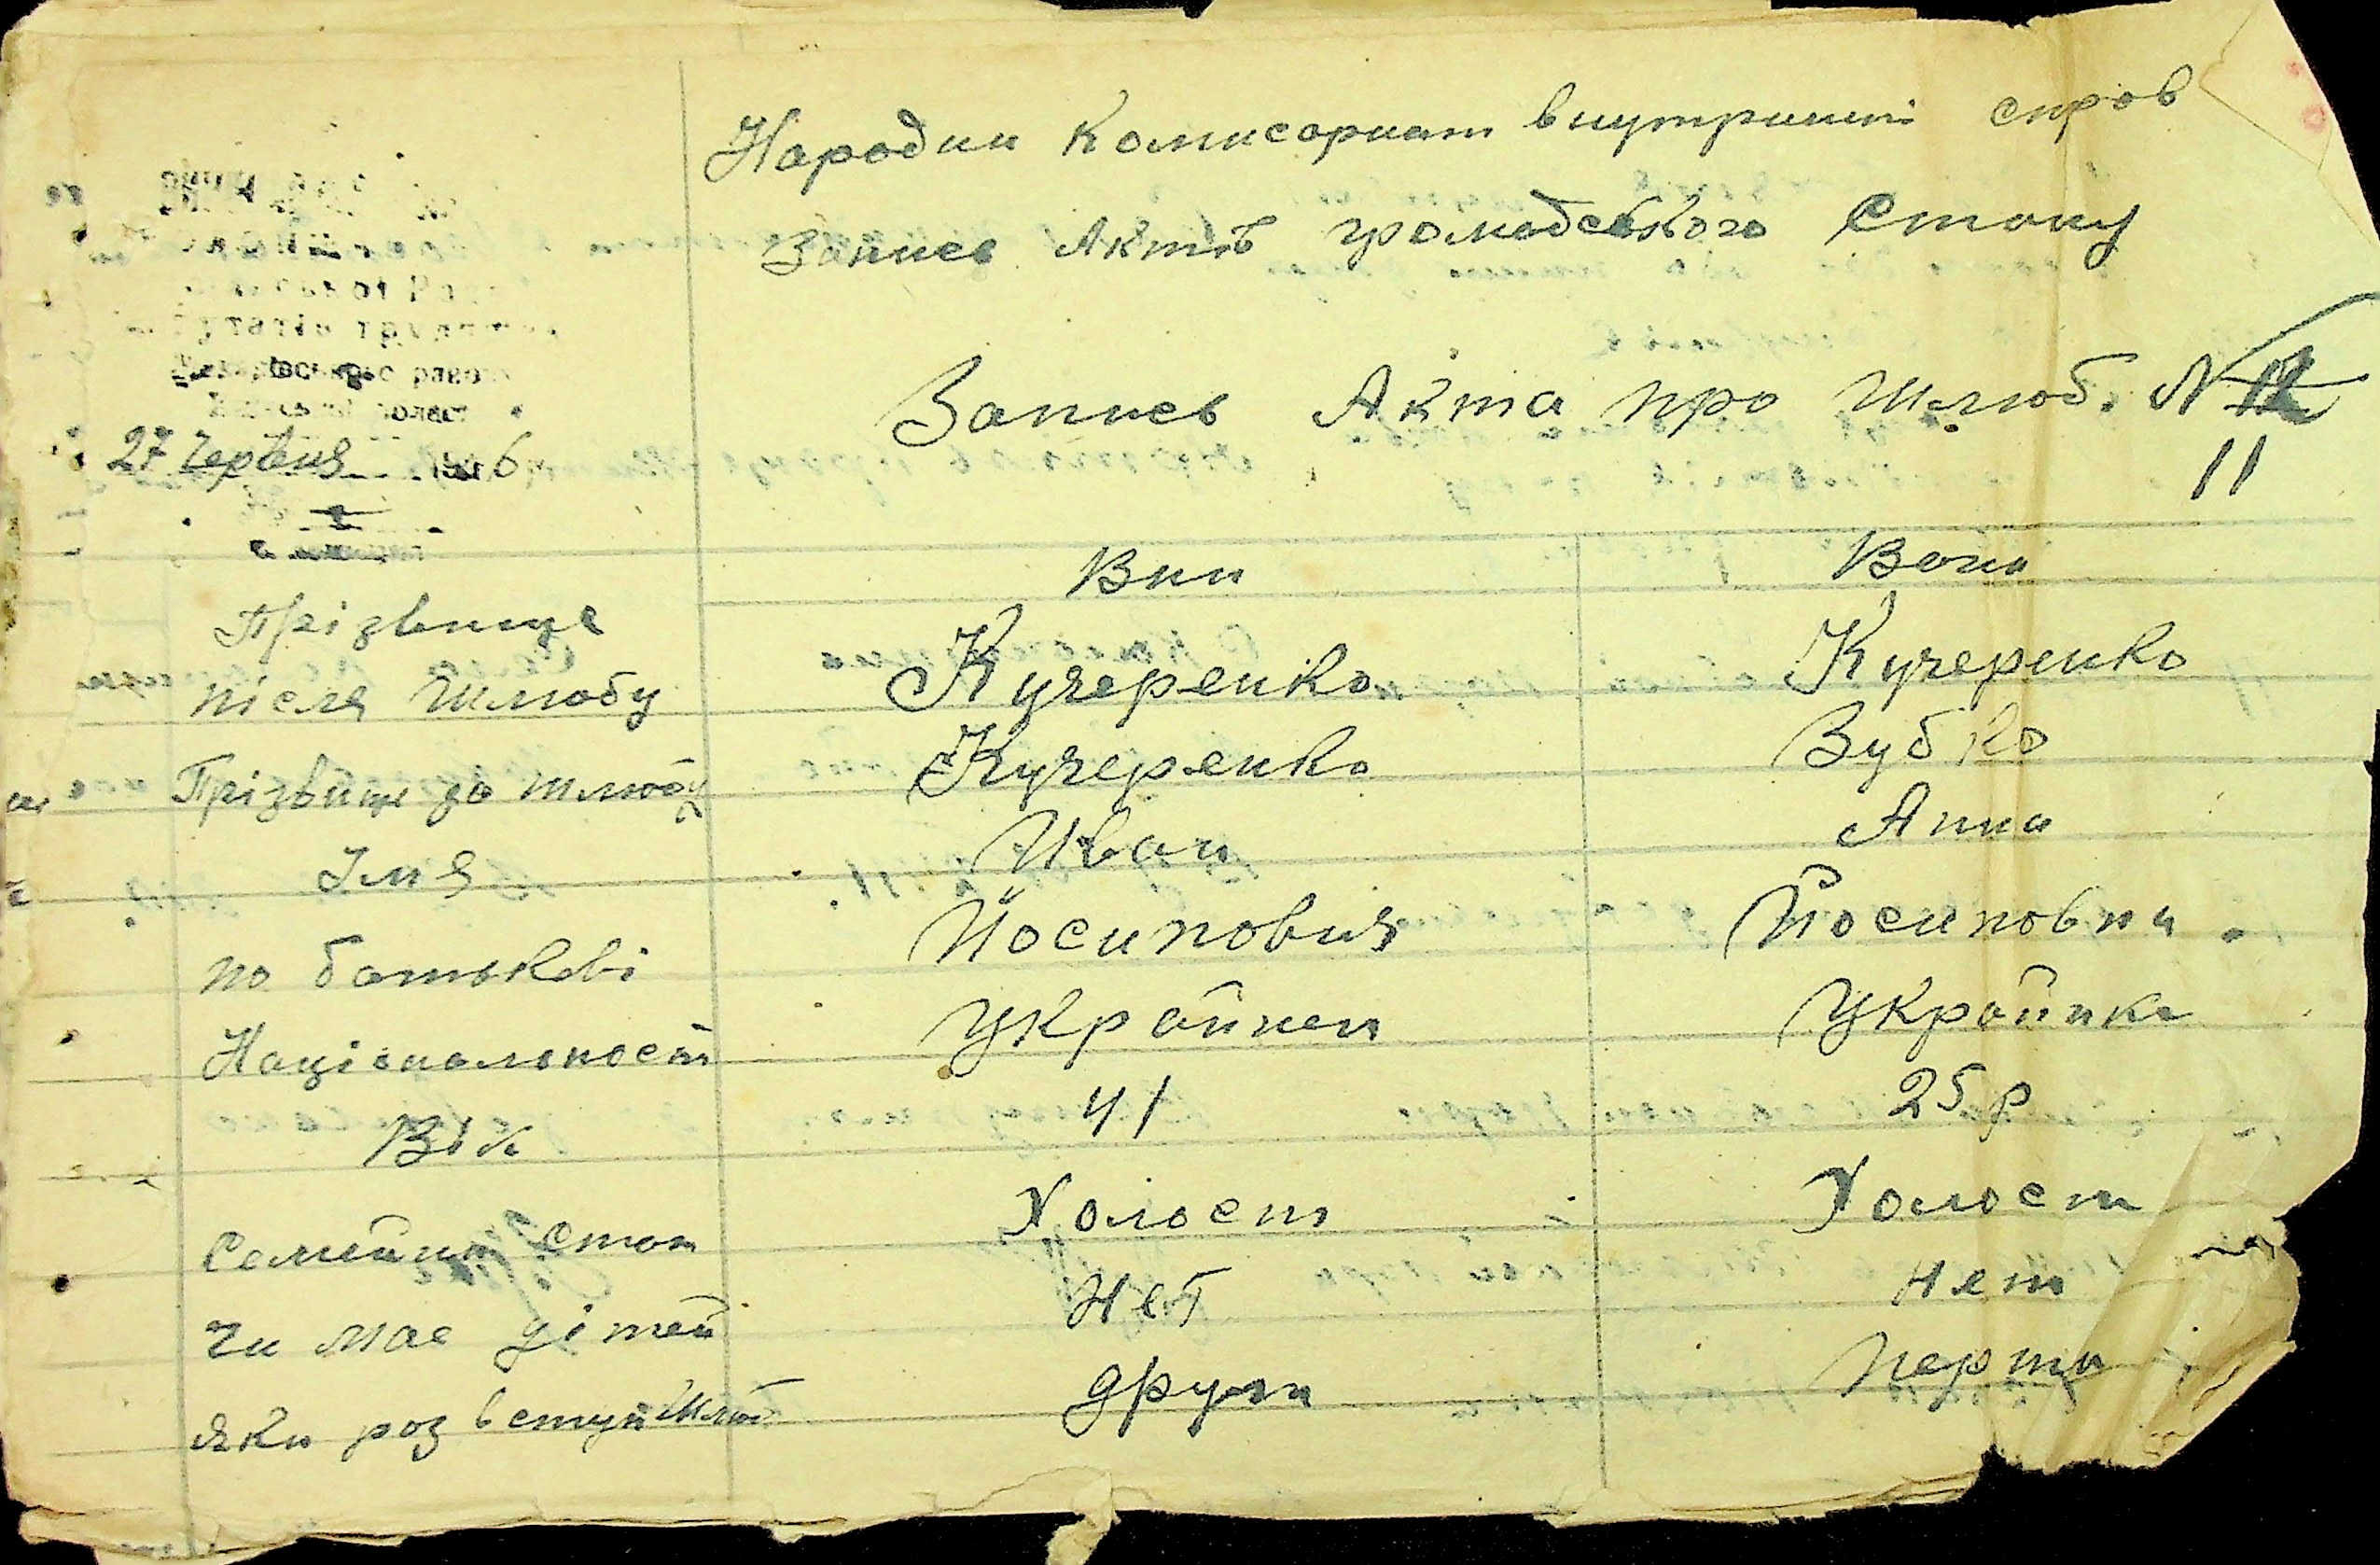 Народни Комисориат внутришні спров
Запись Актів громодського Стону
Запись Акта про Шлюб. N 12
11
27 Червня 6
Вин Вона
Прізвище
після Шлюбу Кучеренко Кучеренко
Прізвище до шлюбу Кучеренко Зубко
Імя Иван Анна
по батькові Йосипович Йосиповна
Національност Украйнец Украйнка
Вік 41 25 р
Семейни Стон Холост Холост
Чи мае дітей Нет Нет
яки роз вступ Шлюб други Перши